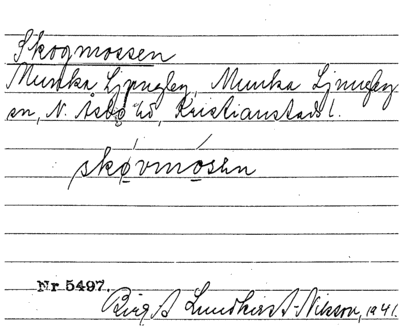 Skogmossen
Munka Ljungby, Munka Ljungby
sn, N. Åsbo hd, Kristianstads l.
skóvmósen
Nr 5497.
Birgit Lundkvist-Nilsson, 1941.